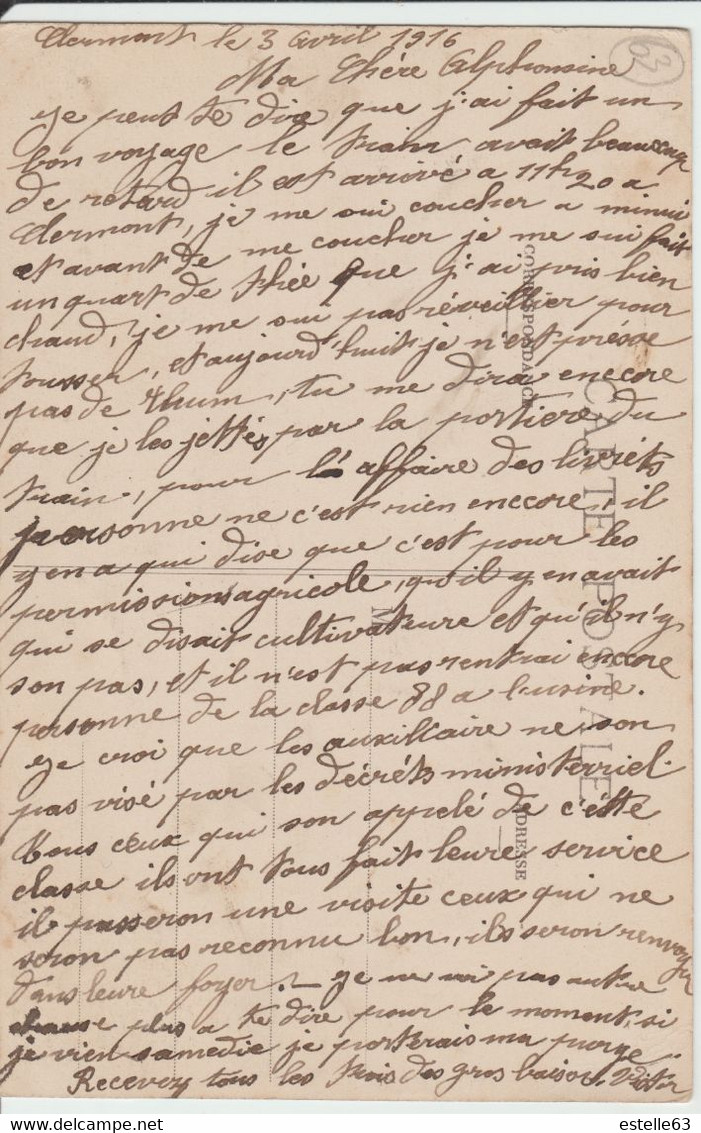 Clermont le 3 avril 1916
63
Ma Chére Alphonsine
je peut te dire que j'ai fait un
bon voyage le train avait beaucoup
de retard il est arrivé a 11h20 a
Clermont, je me sui coucher a minui
et avant de me coucher je me sui fait
un quart de thée que j'ai pris bien
chaud, je me sui pas réveillier pour
tousser, et aujourd'huit je n'est présue
pas de rhum, tu me dira encore
que je les jettés par la portiere du
train, pour l'affaire des livréts
personne ne c'est rien encore, il
y en a qui dise que c'est pour les
permissions agricole, qu'il y en avait
qui se disait cultivateure et qu'il n'y
son pas, et il n'est pas rentrai encore
personne de la classe 88 a l'usine.
je croi que les auxillaire ne son
pas visé par les décréts ministerriel.
Tous ceux qui son applé de c'étte
classe ils ont tous fait leure service
il passeron une visite ceux qui ne
seron pas reconnu bon, ils seron renvoyer
dans leure foyer. — je ne voi pas autre
chause plus a te dire pour le moment, si
je vien samedie je porterais ma purge.
Recevez tous les trois des gros baisou. Victor
CORRESPONDANCE
CARTE POSTALE
M
ADRESSE
estelle63